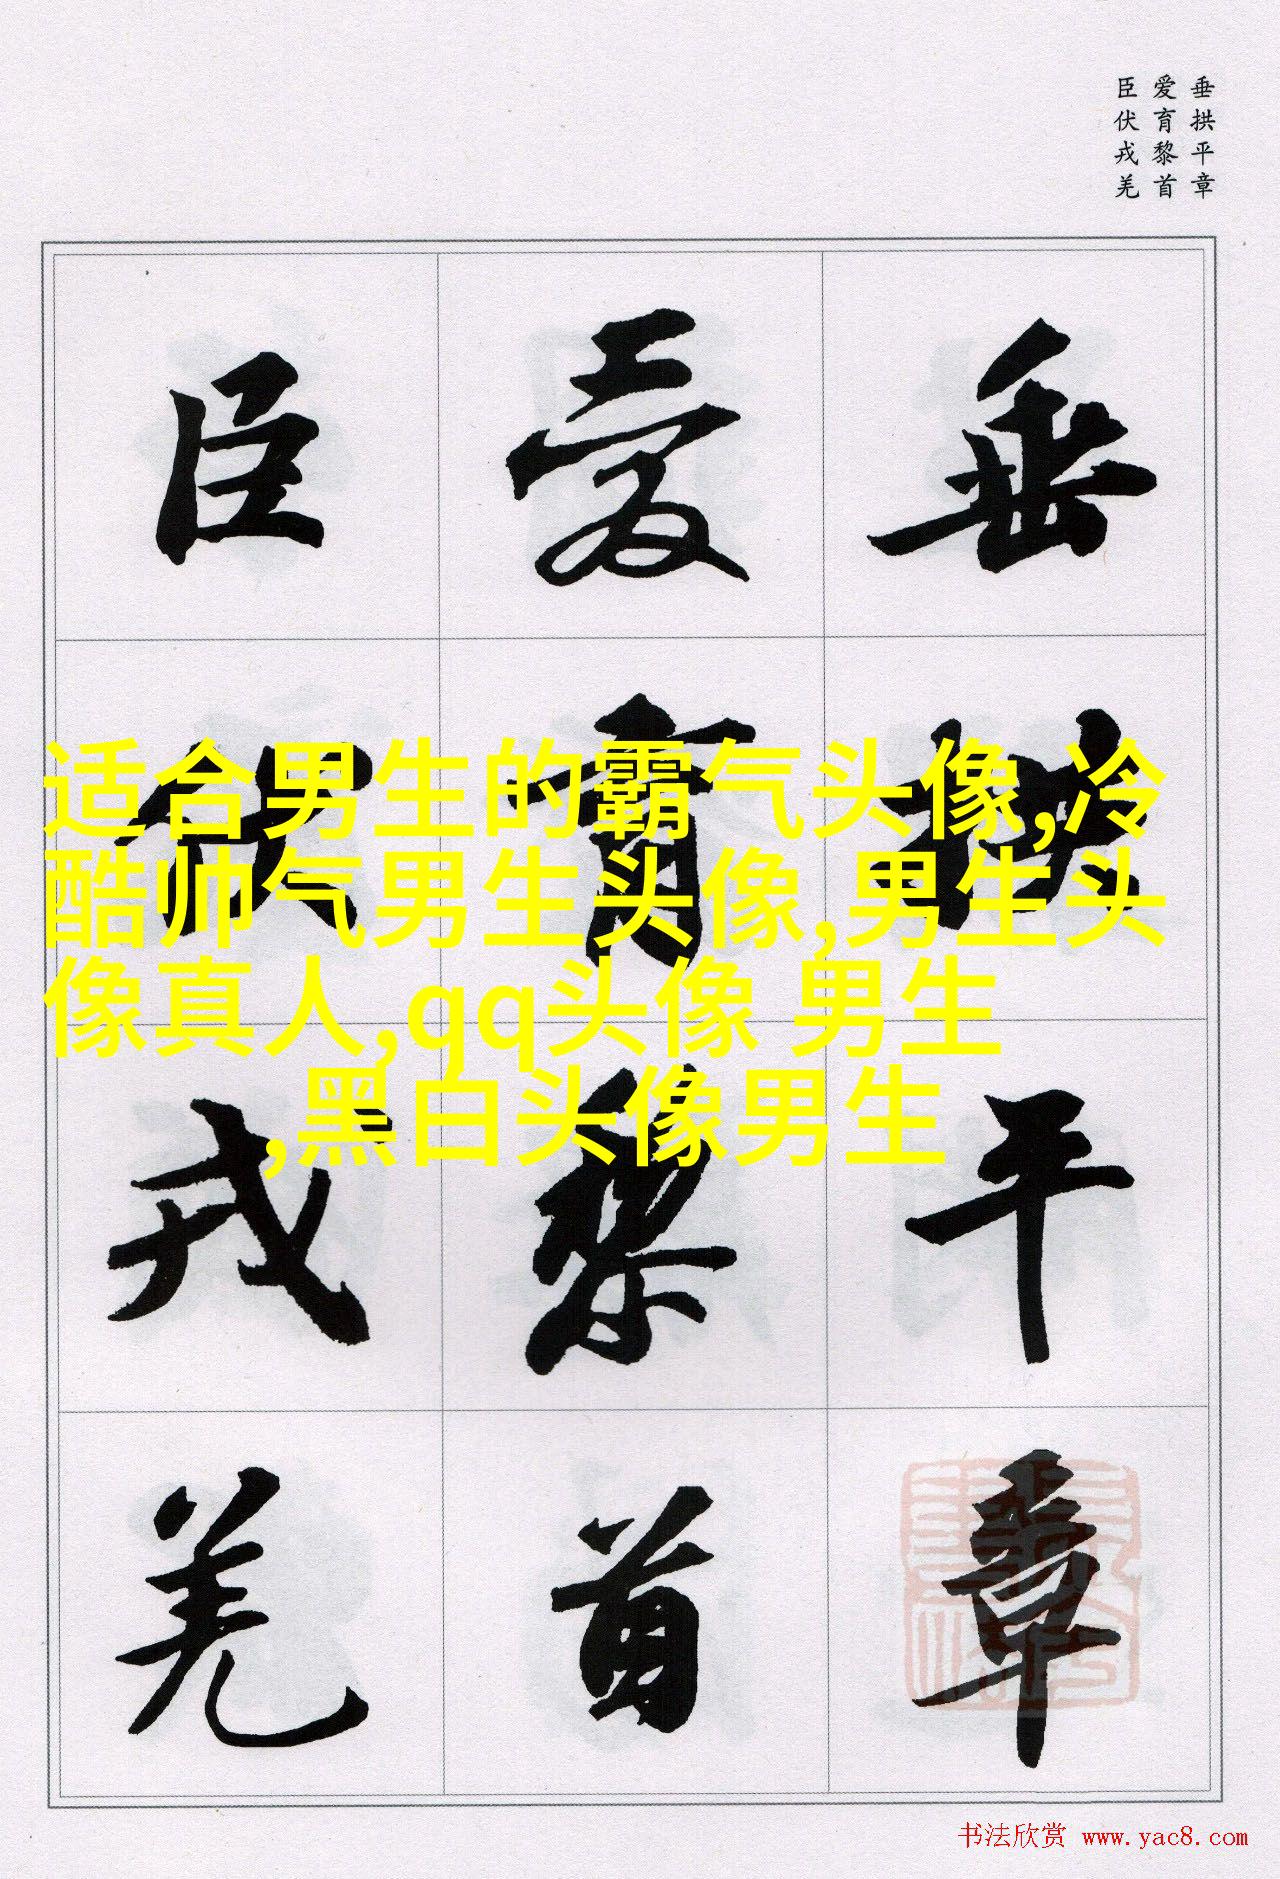 垂拱平章
爱育黎首
臣伏戎羌
垂拱平章
爱育黎首
臣伏戎羌
适合男生的霸气头像,冷
酷帅气男生头像,男生头
像真人,qq头像 男生
,黑白头像男生
书法欣赏 www.yac8.com